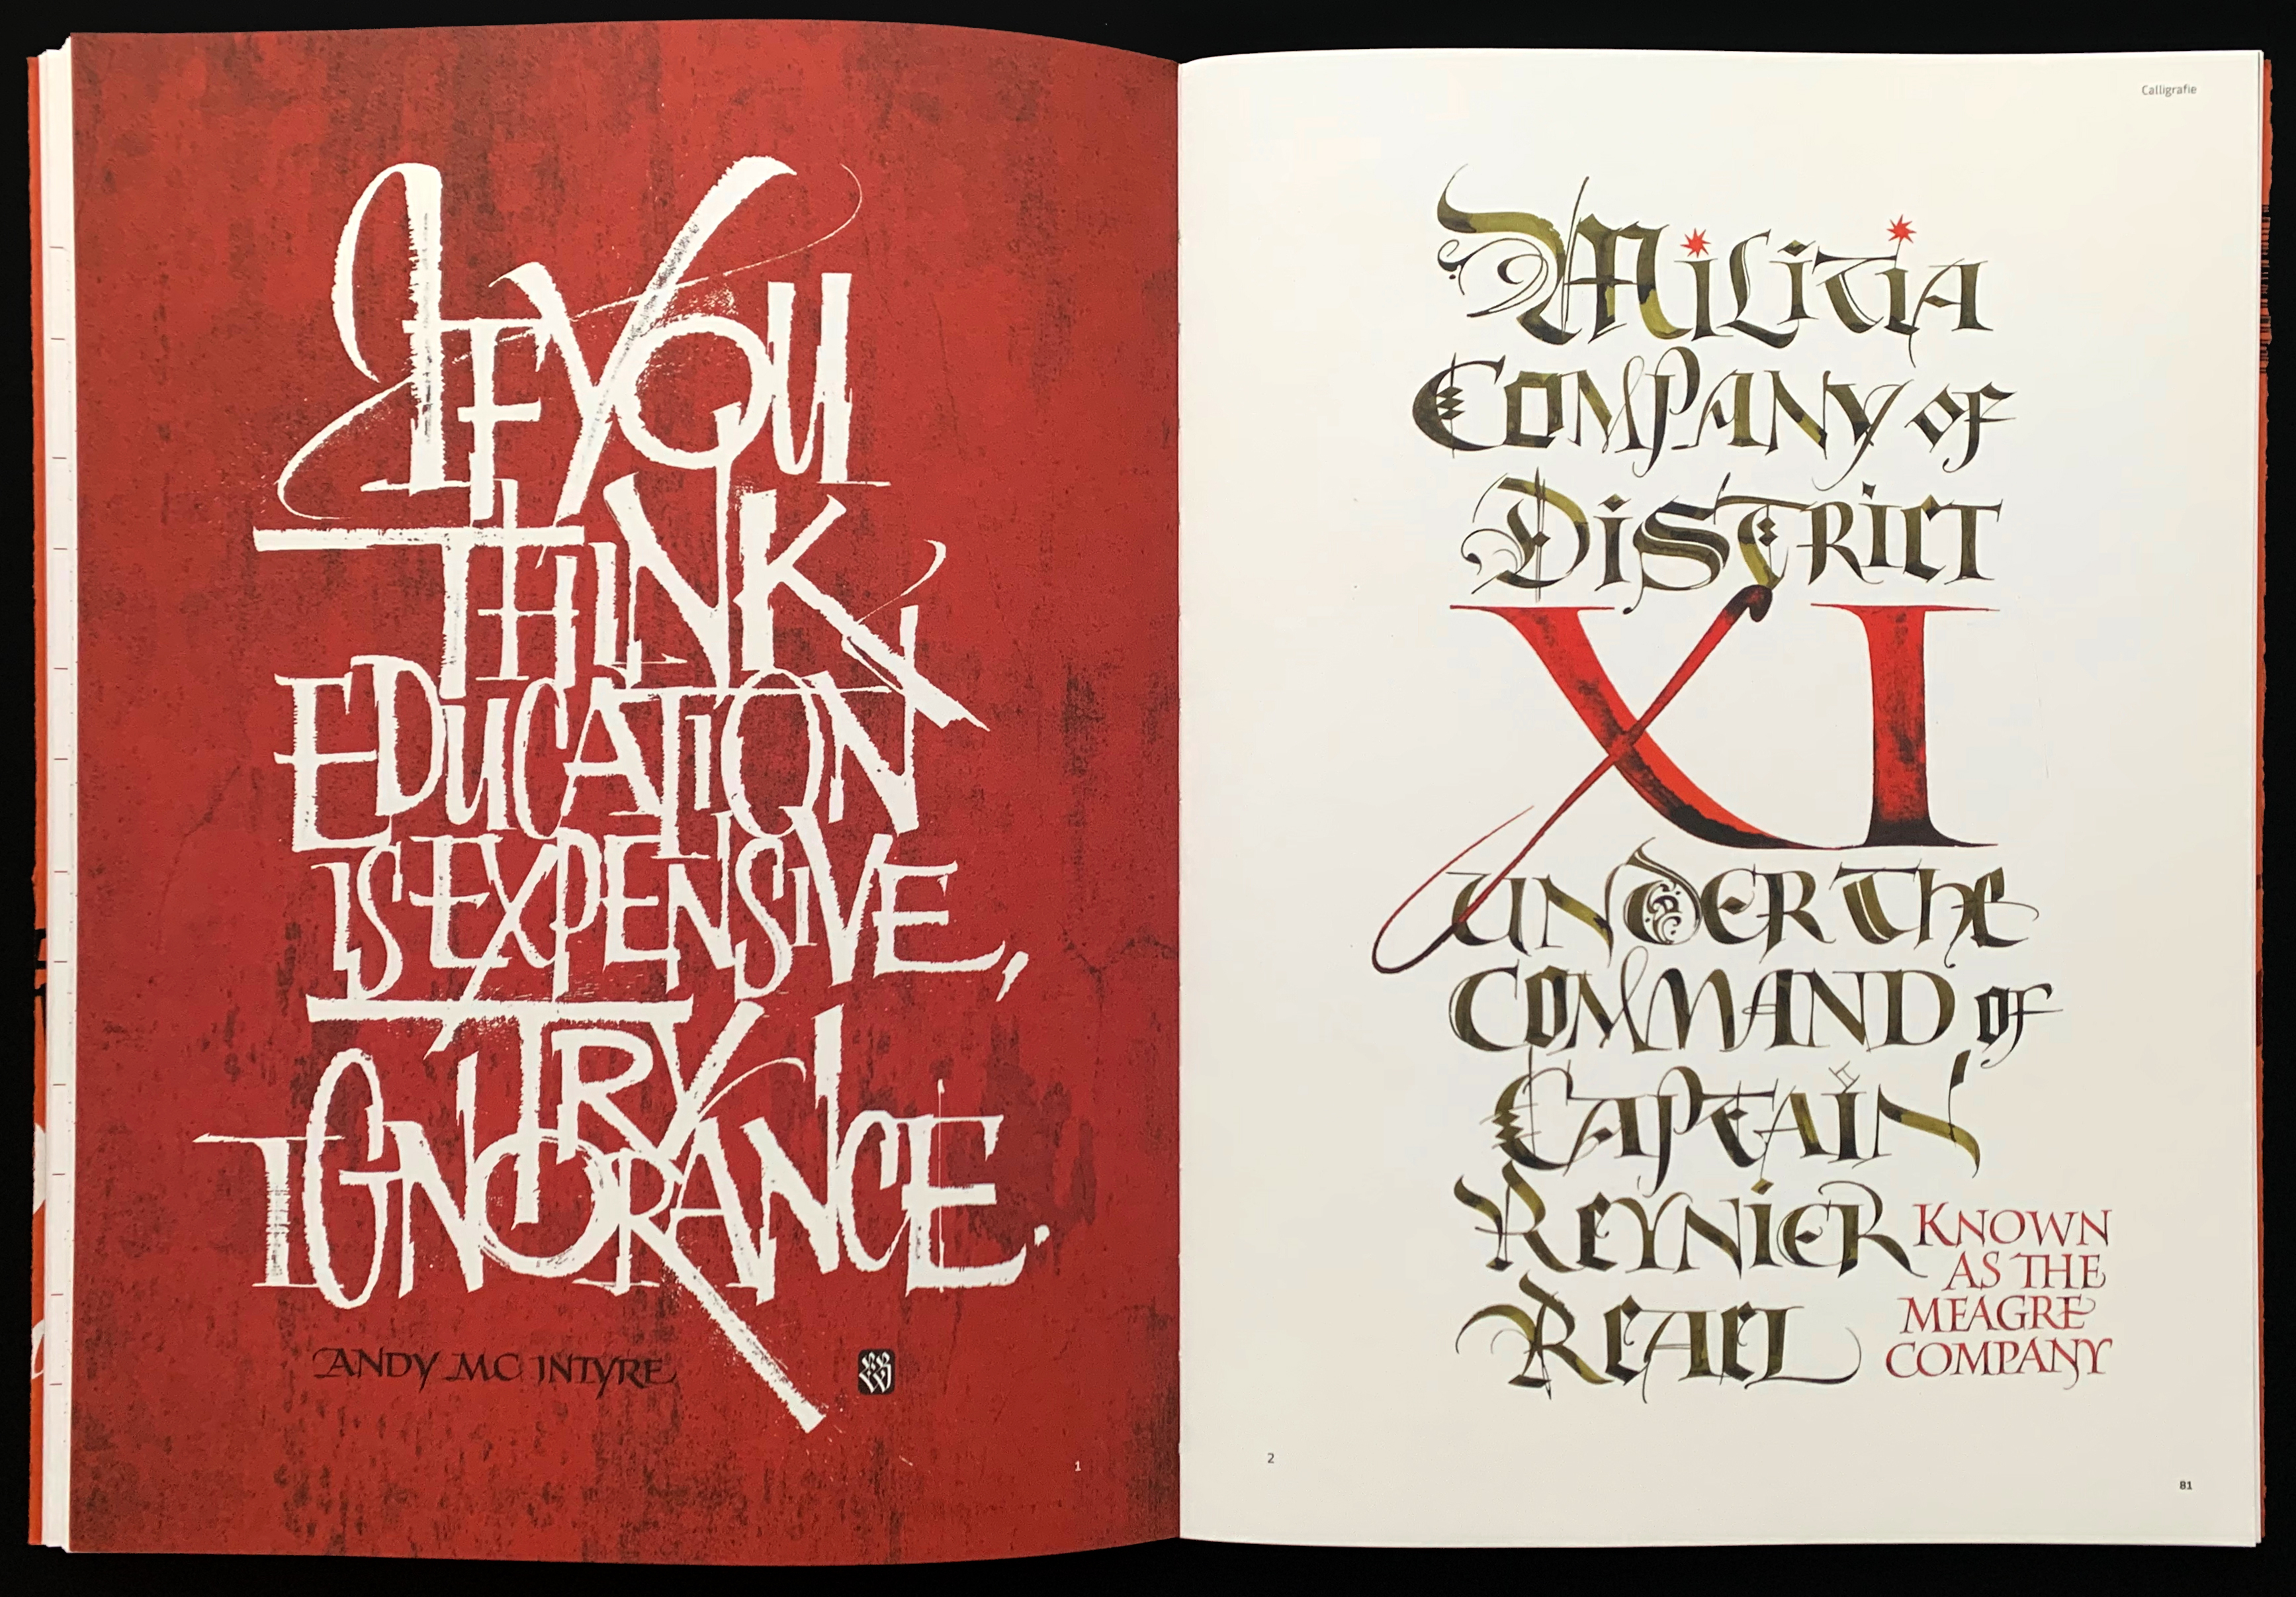 If You
Think
Education
is Expensive,
Try
Ignorance.
Andy Mc Intyre
1
Calligrafie
Militia
Company of
District
XI
under the
command of
Captain
Reynier
Reael
Known
as the
Meagre
Company
2
81